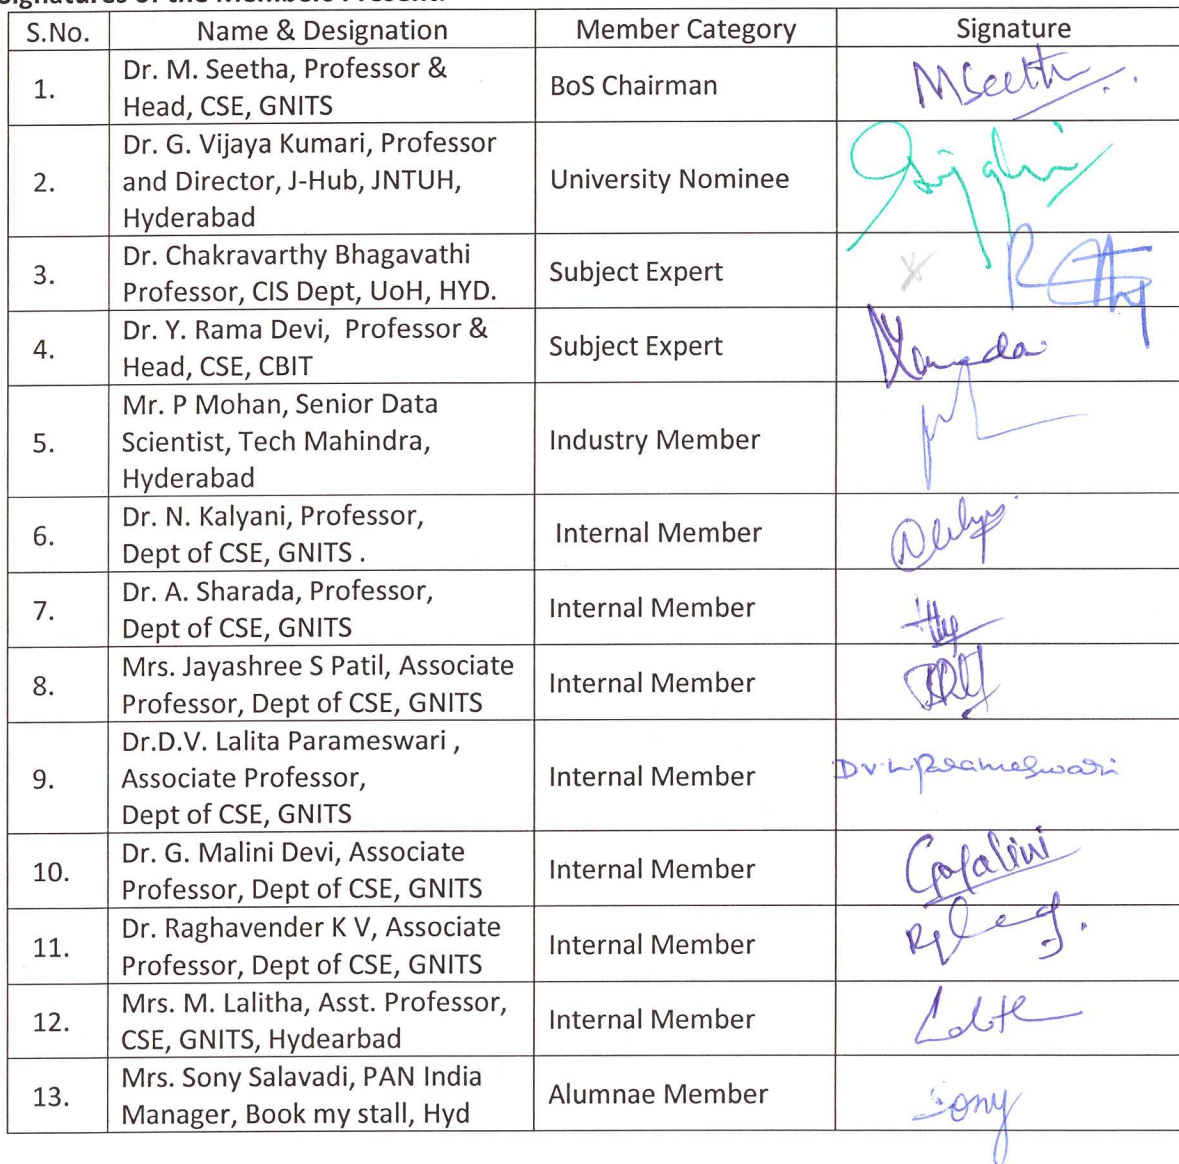 Signatures of the Members Present:
S.No. Name & Designation Member Category Signature
1. Dr. M. Seetha, Professor & Head, CSE, GNITS BoS Chairman MSeetha
2. Dr. G. Vijaya Kumari, Professor and Director, J-Hub, JNTUH, Hyderabad University Nominee
3. Dr. Chakravarthy Bhagavathi Professor, CIS Dept, UoH, HYD. Subject Expert
4. Dr. Y. Rama Devi, Professor & Head, CSE, CBIT Subject Expert
5. Mr. P Mohan, Senior Data Scientist, Tech Mahindra, Hyderabad Industry Member
6. Dr. N. Kalyani, Professor, Dept of CSE, GNITS . Internal Member
7. Dr. A. Sharada, Professor, Dept of CSE, GNITS Internal Member
8. Mrs. Jayashree S Patil, Associate Professor, Dept of CSE, GNITS Internal Member
9. Dr.D.V. Lalita Parameswari , Associate Professor, Dept of CSE, GNITS Internal Member D.V.L.Parameswari
10. Dr. G. Malini Devi, Associate Professor, Dept of CSE, GNITS Internal Member
11. Dr. Raghavender K V, Associate Professor, Dept of CSE, GNITS Internal Member
12. Mrs. M. Lalitha, Asst. Professor, CSE, GNITS, Hydearbad Internal Member
13. Mrs. Sony Salavadi, PAN India Manager, Book my stall, Hyd Alumnae Member Sony